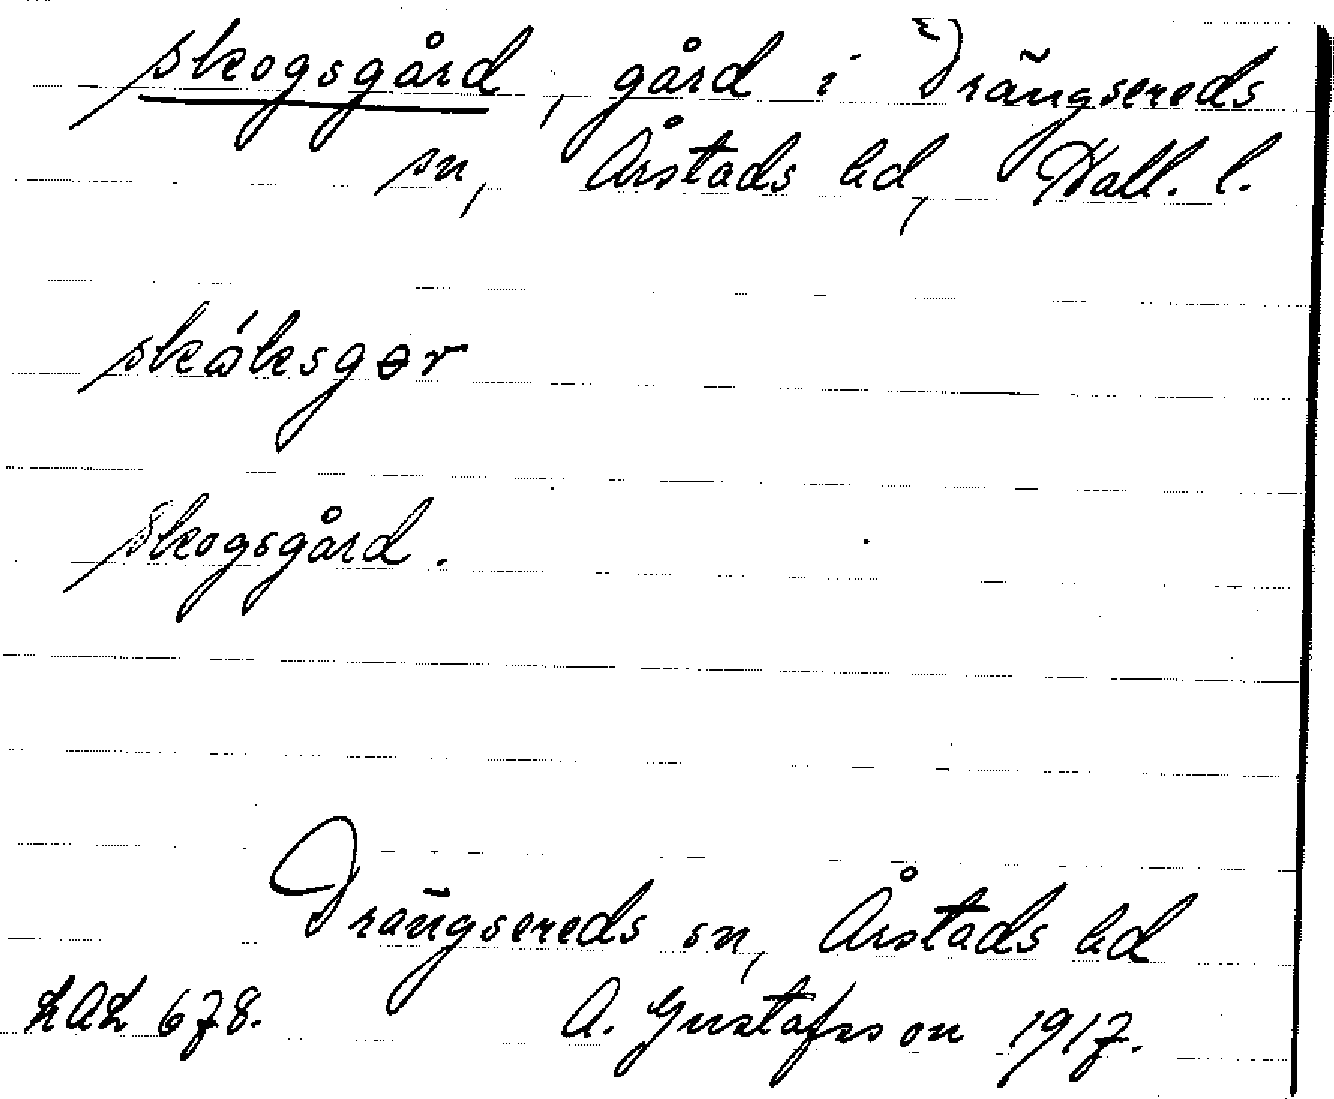 skogsgård, gård i Drängsereds
sn, Årstads hd, Hall. l.
skáksgər
Skogsgård.
Drängsereds sn, Årstads hd
LAL 678. A. Gustafsson 1917.